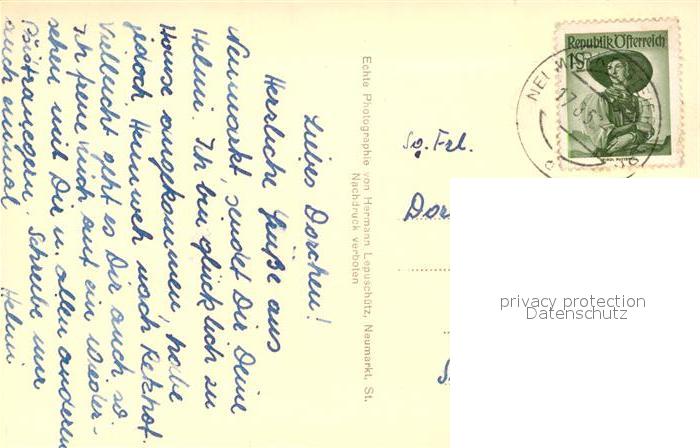 Liebes Dorchen!
Herzliche Grüße aus
Neumarkt, sendet Dir Deine
Helmi. Ich bin glücklich zu
Hause angekommen, habe
jedoch Heimweh nach
Vielleicht geht es Dir auch so.
Ich freue mich auf ein Wieder-
sehen mit Dir u. allen anderen
Schreibe mir
auch einmal
Helmi
Echte Photographie von Hermann Lepuschütz, Neumarkt, St.
Nachdruck verboten
Republik Österreich
1S
NEUM
So. Frl.
Do
privacy protection
Datenschutz